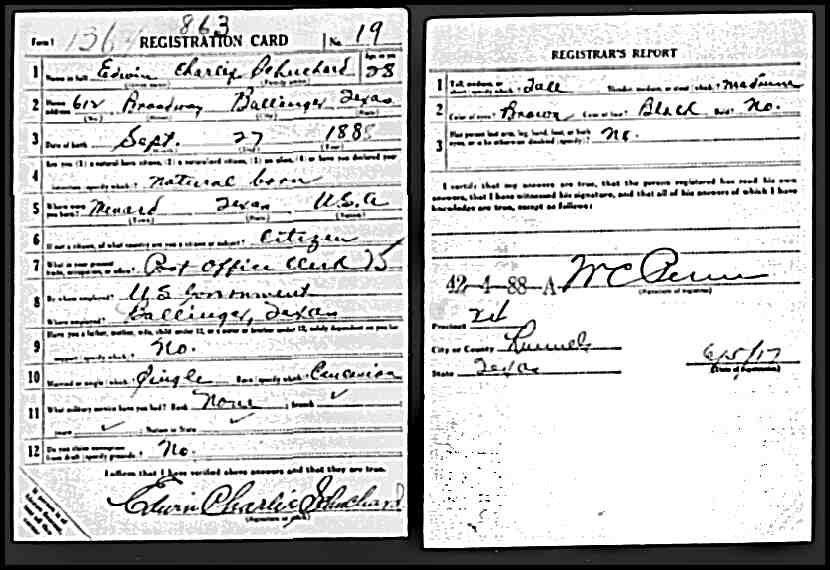 863
Form 1 REGISTRATION CARD No. 19
1 Name in full Edwin Charley Schuchard Age, in yrs. 28
(Given name) (Family name)
2 Home address 612 Broadway Ballinger Texas
(No.) (Street) (City) (State)
3 Date of birth Sept. 27 1888
(Month) (Day) (Year)
4 Are you (1) a natural born citizen, (2) a naturalized citizen, (3) an alien, (4) or have you declared your
intention (specify which)? natural born
5 Where were you born? Menard Texas U.S.A
(Town) (State) (Nation)
6 If not a citizen, of what country are you a citizen or subject? Citizen
7 What is your present trade, occupation, or office? Post Office Clerk
8 By whom employed? U.S. Government
Where employed? Ballinger, Texas
9 Have you a father, mother, wife, child under 12, or a sister or brother under 12, solely dependent on you for
support (specify which)? No.
10 Married or single (which)? Single Race (specify which)? Caucasian
11 What military service have you had? Rank None ; branch ✓
years ✓ ; Nation or State ✓
12 Do you claim exemption from draft (specify grounds)? No.
I affirm that I have verified above answers and that they are true.
Edwin Charlie Schuchard
(Signature or mark)
REGISTRAR'S REPORT
1 Tall, medium, or short (specify which)? Tall Slender, medium, or stout (which)? Medium
2 Color of eyes? Brown Color of hair? Black Bald? No.
3 Has person lost arm, leg, hand, foot, or both eyes, or is he otherwise disabled (specify)? No.
I certify that my answers are true, that the person registered has read his own
answers, that I have witnessed his signature, and that all of his answers of which I have
knowledge are true, except as follows:
42-4-88-A
(Signature of registrar)
Precinct
City or County Runnels
State Texas 6/5/17
(Date of registration)